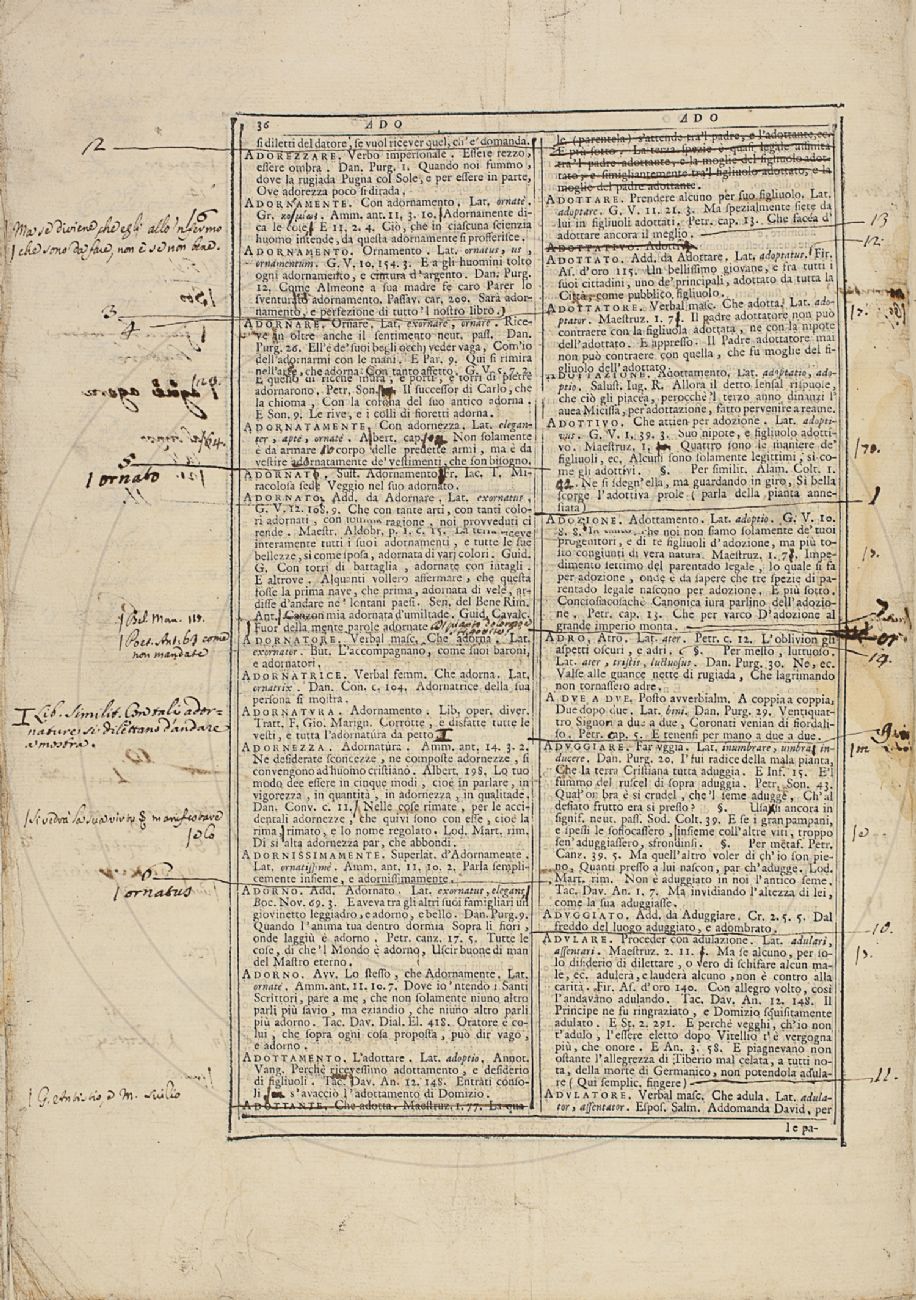 36 ADO ADO
si diletti del datore, se vuol ricever quel, ch'e' domanda.
ADOREZZARE. Verbo impersonale. Essere rezzo,
essere ombra. Dan. Purg. 1. Quando noi fummo,
dove la rugiada Pugna col Sole, e per essere in parte,
Ove adorezza poco si dirada.
ADORNAMENTE. Con adornamento, Lat. ornatè.
Gr. Amm. ant. 11, 3. 10. Adornamente di-
ca le cose E 11, 2. 4. Ciò, che in ciascuna scienzia
huomo intende, da questa adornamente si profferisce.
ADORNAMENTO. Ornamento, Lat. ornatus, us,
ornamentum. G. V. 10. 154. 3. E a gli huomini tolto
ogni adornamento, e cintura d'argento. Dan. Purg.
12. Come Almeone a sua madre fe caro Parer lo
sventurato adornamento. Passav. car. 200. Sarà ador-
namento, e perfezione di tutto 'l nostro libro.
ADORNARE. Ornare, Lat. exornare, ornare. Rice-
ve in oltre anche il sentimento neut. pass. Dan.
Purg. 26. Ell'è de' suoi begli occhi veder vaga, Com'io
dell'adornarmi con le mani. E Par. 9. Qui si rimira
nell'arte, che adorna Con tanto affetto. G. V. 5. 7.
E quello di ricche mura, e porti, e torri di pietre
adornarono. Petr. Son. Il successor di Carlo, che
la chioma, Con la corona del suo antico adorna.
E Son. 9. Le rive, e i colli di fioretti adorna.
ADORNATAMENTE. Con adornezza, Lat. elegan-
ter, aptè, ornatè. Albert. cap. Non solamente
è da armare lo corpo delle predette armi, ma è da
vestire adornatamente de' vestimenti, che son bisogno.
ADORNATO, Sust. Adornamento. Fr. Iac. T. Mi-
racolosa sede Veggio nel suo adornato.
ADORNATO, Add. da Adornare, Lat. exornatus,
G. V. 12. 108. 9. Che con tante arti, con tanti colo-
ri adornati, con ragione, noi provveduti ci
rende. Maestr. Aldobr. p. 1. c. 15. La terra
interamente tutti i suoi adornamenti, e tutte le sue
bellezze, si come sposa, adornata di varj colori. Guid.
G. Con torri di battaglia, adornate con intagli.
E altrove. Alquanti vollero affermare, che questa
fosse la prima nave, che prima, adornata di vele, ar-
disse d'andare ne' lontani paesi. Sen. del Bene Rim.
Ant. Canzon mia adornata d'umiltade. Guid. Cavalc.
Fuor della mente parole adornate
ADORNATORE. Verbal masc. Che adorna. Lat.
exornator. But. L'accompagnano, come suoi baroni,
e adornatori.
ADORNATRICE. Verbal femm. Che adorna. Lat.
ornatrix. Dan. Con. c. 104, Adornatrice della sua
persona si mostra.
ADORNATVRA. Adornamento. Lib, oper, diver.
Tratt. F. Gio. Marign. Corrotte, e disfatte tutte le
vesti, e tutta l'adornatura da petto
ADORNEZZA. Adornatura. Amm. ant. 14. 3. 2.
Ne desiderate sconcezze, ne composte adornezze, si
convengono ad huomo cristiano. Albert. 198, Lo tuo
modo dee essere in cinque modi, cioè in parlare, in
vigorezza, in quantità, in adornezza, in qualitade.
Dan. Conv. c. 11. Nelle cose rimate, per le acci-
dentali adornezze, che quivi sono con esse, cioè la
rima, rimato, e lo nome regolato. Lod. Mart. rim.
Di sì alta adornezza par, che abbondi.
ADORNISSIMAMENTE. Superlat. d'Adornamente,
Lat, ornatissimè. Amm. ant. 11, 10, 2. Parla sempli-
cemente insieme, e adornissimamente.
ADORNO. Add. Adornato. Lat. exornatus, elegans,
Boc. Nov. 69. 3. E aveva tra gli altri suoi famigliari un
giovinetto leggiadro, e adorno, e bello. Dan. Purg. 9.
Quando l'anima tua dentro dormia Sopra li fiori,
onde laggiù è adorno. Petr. canz. 17. 5. Tutte le
cose, di che 'l Mondo è adorno, Uscir buone di man
del Mastro eterno.
ADORNO. Avv. Lo stesso, che Adornamente. Lat.
ornatè. Amm. ant. 11. 10. 7. Dove io 'ntendo i Santi
Scrittori, pare a me, che non solamente niuno altro
parli più savio, ma eziandio, che niuno altro parli
più adorno. Tac. Dav. Dial. El. 418. Oratore è co-
lui, che sopra ogni cosa proposta, può dir vago,
e adorno.
ADOTTAMENTO. L'adottare. Lat. adoptio, Annot.
Vang. Perchè ricevessimo adottamento, e desiderio
di figliuoli. Tac. Dav. An. 12. 148. Entrati conso-
li s'avaccio l'adottamento di Domizio.
ADOTTANTE, Che adotta. Maestruz. 1. 77. La qua-
le (parentela) s'attende tra'l padre, e l'adottante, ec.
E più sotto. La terza spezie è quasi legale affinità
tra'l padre adottante, e la moglie del figliuolo adot-
tato, e simigliantemente tra'l figliuolo adottato, e la
moglie del padre adottante.
ADOTTARE. Prendere alcuno per suo figliuolo. Lat.
adoptare. G. V. 11. 21. 3. Ma spezialmente siete da
lui in figliuoli adottati. Petr. cap. 13. Che facea d'
adottare ancora il meglio.
ADOTTATIVO.
ADOTTATO. Add. da Adottare. Lat. adoptatus. Fir.
As. d'oro 115. Un bellissimo giovane, e fra tutti i
suoi cittadini, uno de' principali, adottato da tutta la
Città, come pubblico figliuolo.
ADOTTATORE. Verbal masc. Che adotta. Lat. ado-
ptator. Maestruz. 1. 7 Il padre adottatore non può
contraere con la figliuola adottata, ne con la nipote
dell'adottato. E appresso. Il Padre adottatore mai
non può contraere con quella, che fu moglie del fi-
gliuolo dell'adottato.
ADOTTAZIONE. Adottamento, Lat. adoptatio, ado-
ptio. Salust. Iug. R. Allora il detto sensal rispuose,
che ciò gli piacea, perocchè 'l terzo anno dinanzi l'
avea Micissa, per adottazione, fatto pervenire a reame.
ADOTTIVO. Che attien per adozione. Lat. adopti-
vus. G. V. 1. 39. 3. Suo nipote, e figliuolo adotti-
vo. Maestruz. 1. Quattro sono le maniere de'
figliuoli, ec. Alcuni sono solamente legittimi, sì co-
me gli adottivi. §. Per similit. Alam. Colt. 1.
Ne si sdegn'ella, ma guardando in giro, Si bella
scorge l'adottiva prole (parla della pianta anne-
stata)
ADOZIONE. Adottamento. Lat. adoptio. G. V. 10.
8. 8. che noi non siamo solamente de' tuoi
progenitori, e di te figliuoli d'adozione, ma più to-
sto congiunti di vera natura. Maestruz. 1. 7 Impe-
dimento settimo del parentado legale, lo quale si fa
per adozione, onde è da sapere che tre spezie di pa-
rentado legale nascono per adozione. E più sotto.
Conciosiacosachè Canonica iura parlino dell'adozio-
ne. Petr. cap. 13. Che per varco D'adozione al
grande imperio monta.
ADRO, Atro. Lat. ater. Petr. c. 12. L'oblivion gli
aspetti oscuri, e adri. §. Per mesto, luttuoso.
Lat. ater, tristis, luctuosus. Dan. Purg. 30. Ne, ec.
Valse alle guance nette di rugiada, Che lagrimando
non tornassero adre.
A DVE A DVE. Posto avverbialm. A coppia a coppia,
Due dopo due. Lat. bini. Dan. Purg. 29. Ventiquat-
tro Signori a due a due, Coronati venian di fiordali-
so. Petr. cap. 5. E tenensi per mano a due a due.
ADVGGIARE. Far uggia. Lat. inumbrare, umbrā in-
ducere. Dan. Purg. 20. I' fui radice della mala pianta,
Che la terra Cristiana tutta aduggia. E Inf. 15. E 'l
fummo del ruscel di sopra aduggia. Petr. Son. 43.
Qual' ombra è si crudel, che 'l seme adugge, Ch'al
desiato frutto era si presso? §. Usasi ancora in
signif. neut. pass. Sod. Colt. 39. E se i gran pampani,
e spessi le soffocassero, insieme coll'altre viti, troppo
sen' aduggiassero, sfrondinsi. §. Per metaf. Petr.
Canz. 39. 5. Ma quell'altro voler di ch'io son pie-
no, Quanti presso a lui nascon, par ch'adugge. Lod.
Mart. rim. Non è aduggiato in noi l'antico seme.
Tac. Dav. An. 1. 7. Ma invidiando l'altezza di lei,
come la sua aduggiasse.
ADVGGIATO. Add. da Aduggiare. Cr. 2. 5. 5. Dal
freddo del luogo aduggiato, e adombrato.
ADVLARE. Proceder con adulazione. Lat. adulari,
assentari. Maestruz. 2. 11. Ma se alcuno, per so-
lo disiderio di dilettare, o vero di schifare alcun ma-
le, ec. adulerà, e lauderà alcuno, non è contro alla
carità. Fir. As. d'oro 140. Con allegro volto, così
l'andavano adulando. Tac. Dav. An. 12. 148. Il
Principe ne fu ringraziato, e Domizio squisitamente
adulato. E St. 2. 291. E perchè vegghi, ch'io non
t'adulo, l'essere eletto dopo Vitellio t'è vergogna
più, che onore. E An. 3. 58. E piagnevano non
ostante l'allegrezza di Tiberio mal celata, a tutti no-
ta, della morte di Germanico, non potendola adula-
re (Qui semplic. fingere)
ADVLATORE. Verbal masc. Che adula. Lat. adula-
tor, assentator. Espos. Salm. Addomanda David, per
le pa-
2
Ma se diviene che egli allo 'nfermo
che sono da fare, non è se non bene.
3
4
5
ornato
Bel Man. 119.
Poet. Ant. 64 come
non mandate
Lib. Similit. Con tali ador-
nature, si dilettano d'andare
a mostra.
Si vedrà la sua virtù manifestare
6
ornatus
G. Antistio e M. Suilio
13
12
14
10.
11.